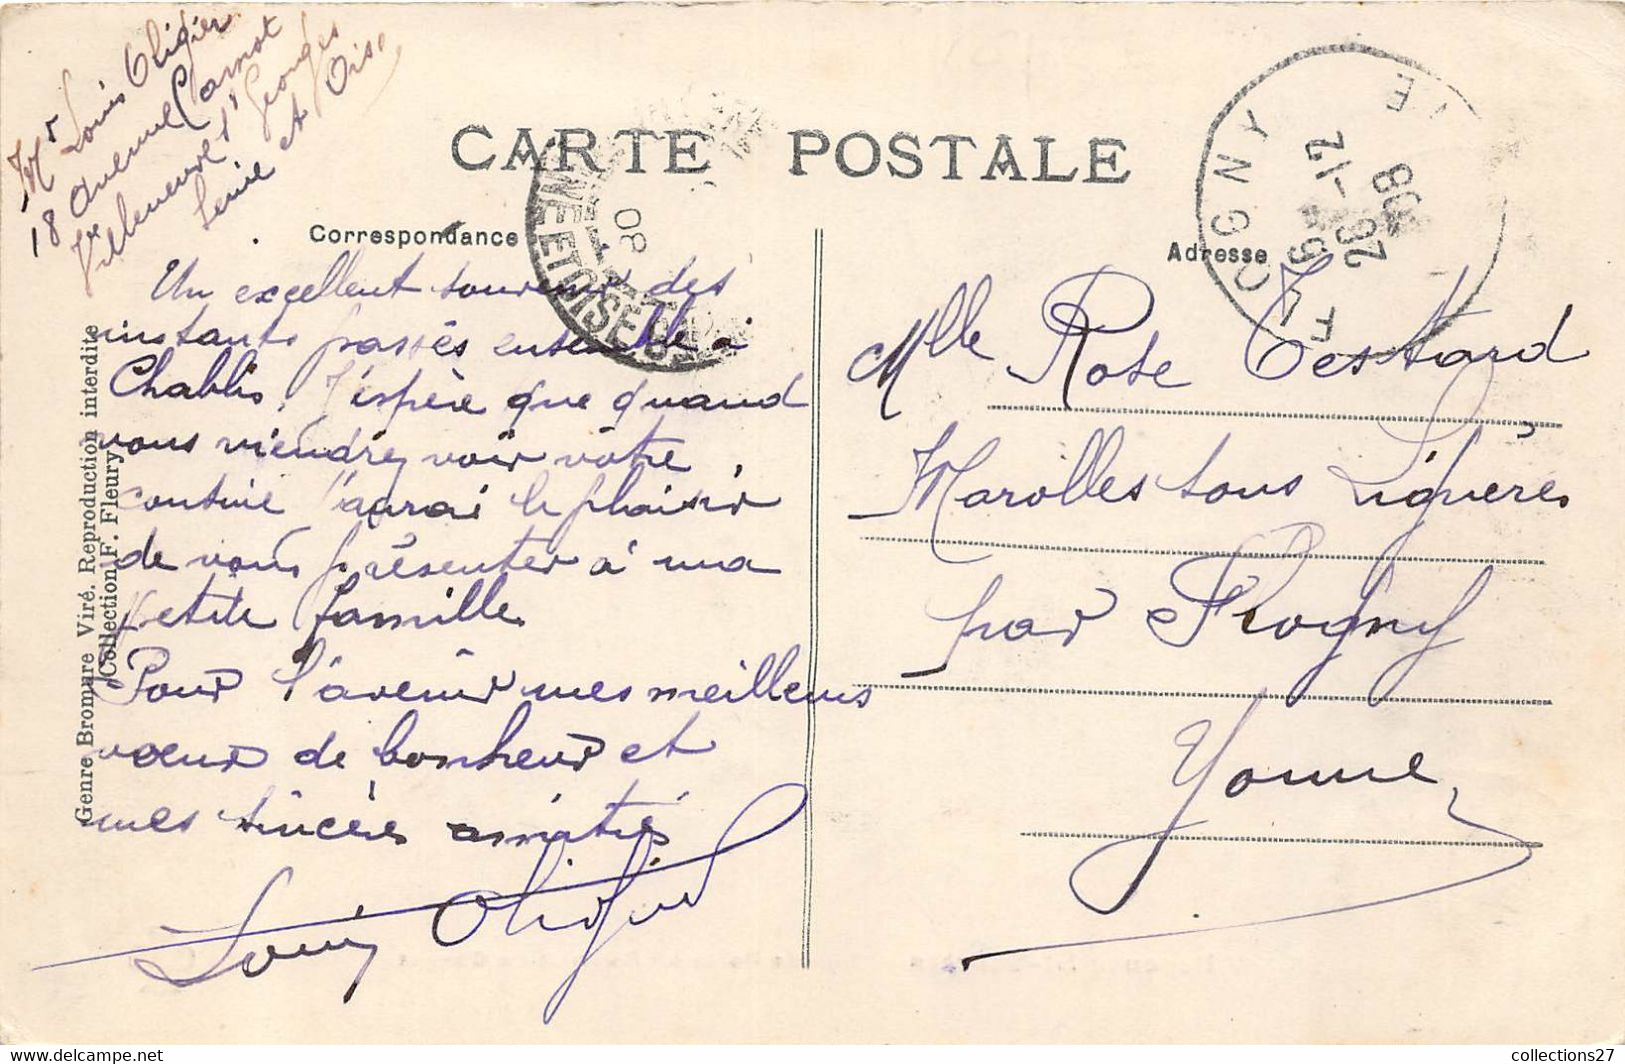 Mr Louis Oligier
18 Avenue Carnot
Villeneuve St Georges
Seine et Oise
CARTE POSTALE
Correspondance
Adresse
Un excellent souvenir des
instants passés ensemble à
Chablis. J'espère que quand
vous viendrez voir votre
cousine j'aurai le plaisir
de vous présenter à ma
petite famille.
Pour l'avenir mes meilleurs
vœux de bonheur et
mes sincères amitiés
Louis Oligier
Mlle Rose Testard
Marolles sous Lignières
par Flogny
Yonne
FLOGNY
26 -12
08
NE ET OISE
08
Genre Bromure Viré. Reproduction interdite
Collection F. Fleury
collections27